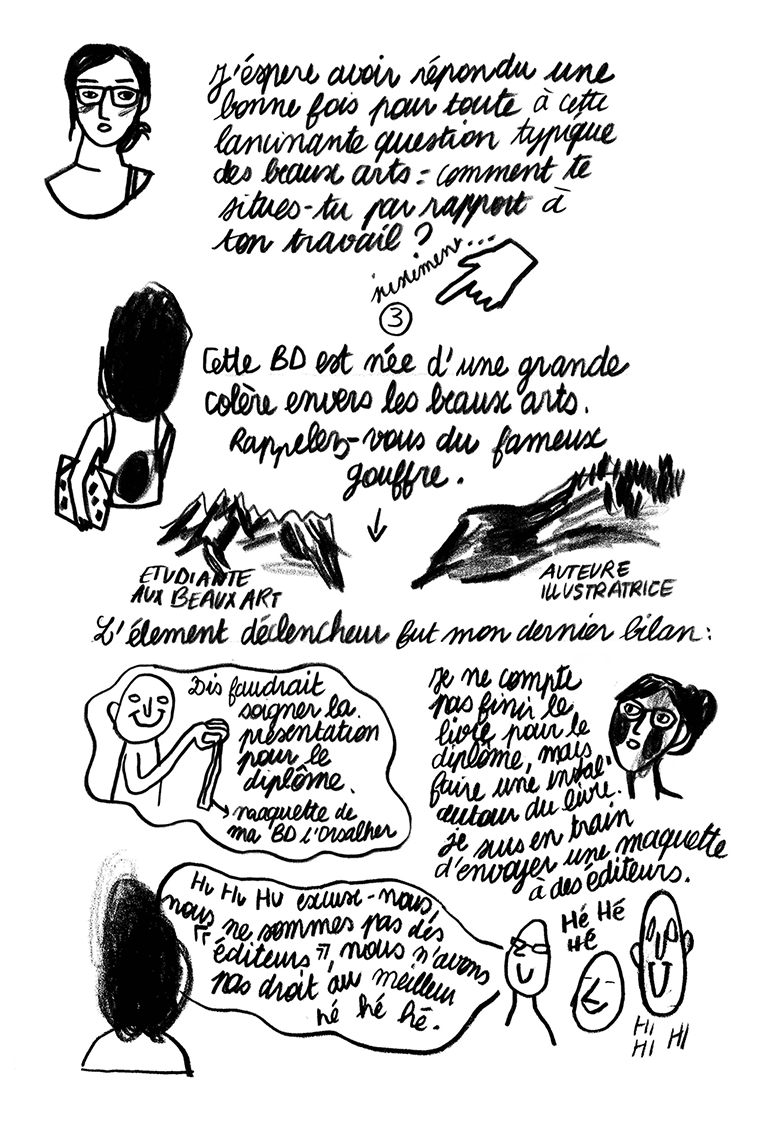 J'éspere avoir répondu une
bonne fois pour toute à cette
lancinante question typique
des beaux arts : comment te
situes-tu par rapport à
ton travail ?
3
Cette BD est née d'une grande
colère envers les beaux arts.
Rappelez-vous du fameux
gouffre.
ETUDIANTE
AUX BEAUX ART
AUTEURE
ILLUSTRATRICE
L'élement déclencheur fut mon dernier bilan :
Dis faudrait
soigner la
présentation
pour le
diplôme.
maquette de
ma BD l'Orsalher
Je ne compte
pas finir le
livre pour le
diplôme, mais
faire une instal'
autour du livre.
je suis en train
d'envoyer une maquette
à des éditeurs.
Hu Hu Hu excuse-nous,
nous ne sommes pas des
"éditeurs", nous n'avons
pas droit au meilleur
hé hé hé.
Hé Hé
Hé
Hi
Hi Hi